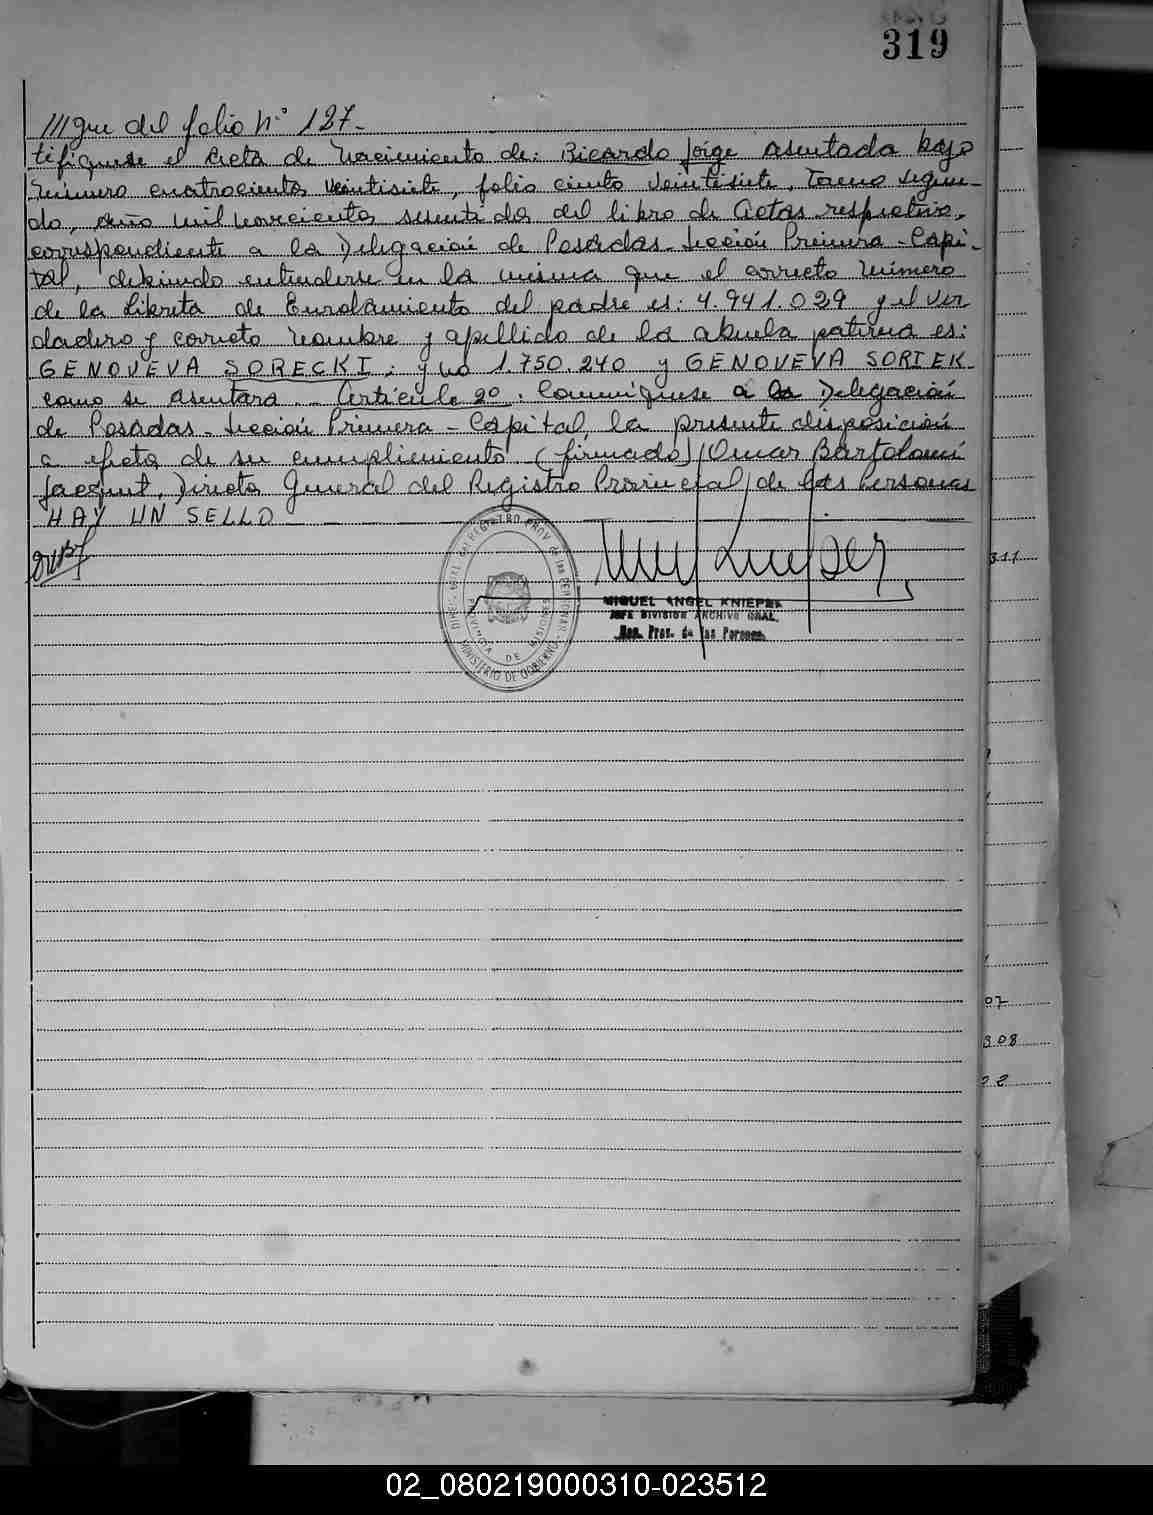 319
///gue del folio Nº 127.-
tifíquese el Acta de Nacimiento de: Ricardo Jorge asentada bajo
número cuatrocientos veintisiete, folio ciento veintisiete, Tomo segun-
do, año mil novecientos sesenta dos del libro de Actas respectivo,
correspondiente a la Delegación de Posadas - Sección Primera - Capi-
tal, debiendo entenderse en la misma que el correcto número
de la Libreta de Enrolamiento del padre es: 4.941.029 y el ver
dadero y correcto nombre y apellido de la abuela paterna es:
GENOVEVA SORECKI; y no 1.750.240 y GENOVEVA SORIEK
como se asentara.- Artículo 2º. Comuníquese a la Delegación
de Posadas - Sección Primera - Capital, la presente disposición
a efecto de su cumplimiento. (firmado) Omar Bartolomé
Jacquet, Director General del Registro Provincial de las Personas
HAY UN SELLO
MINISTERIO DE GOBIERNO
PROVINCIA DE MISIONES
MIGUEL ANGEL KNIEPER
JEFE DIVISION ARCHIVO GRAL.
Reg. Prov. de las Personas
311
07
308
22
02_080219000310-023512